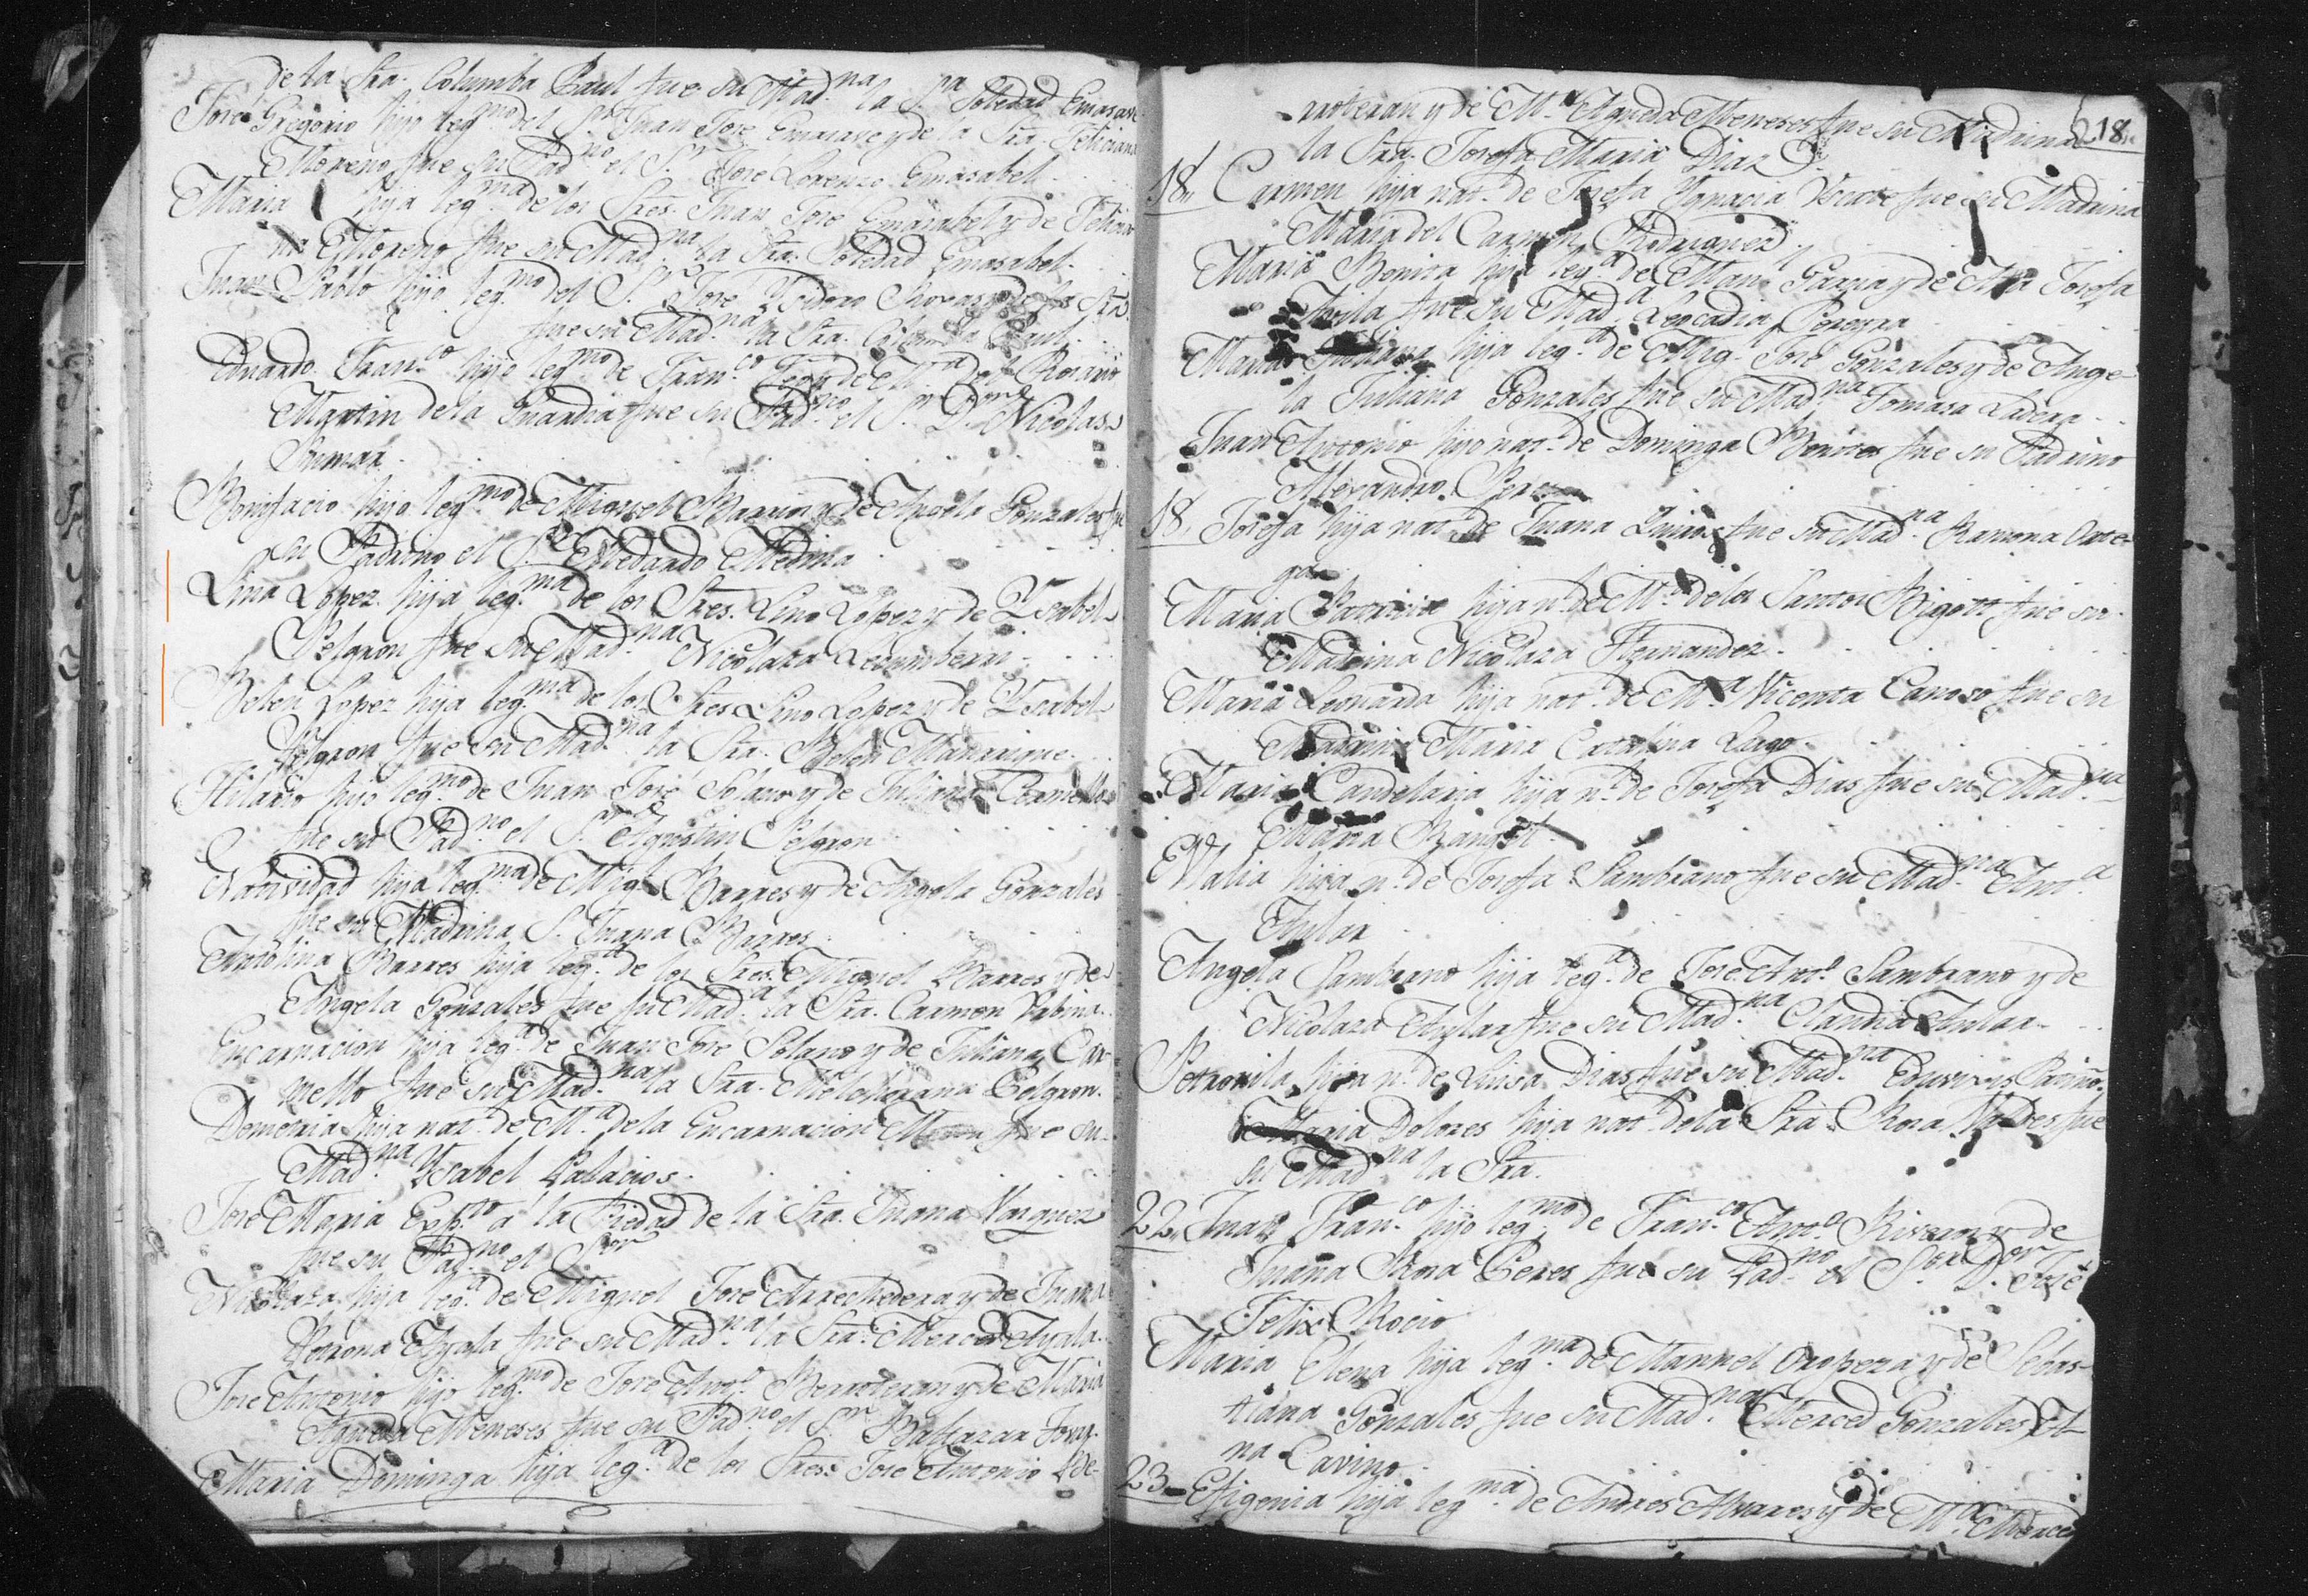 de la Sra. Columba Paul fue su Mad.na la S.ra Soledad Emasabel
José Gregorio hijo leg.mo del S.or Juan José Emasabel y de la Sra. Feliciana
Moreno fue su Pad.no el S.r José Lorenzo Emasabel
Maria hija leg.ma de los Sres. Juan José Emasabel y de Felicia
na Moreno fue su Mad.na la Sra. Soledad Emasabel
Juan Pablo hijo leg.mo del S.r José Ysidoro Roxas y de la Sra.
fue su Mad.na la Sra. Columba Paul
Eduardo Fran.co hijo leg.mo de Fran.co y de M.a del Rosario
Martin de la Guardia fue su Pad.no el S.r D.n Nicolas
Bonifacio hijo leg.mo de Miguel Barrios y de Angela Gonzales fue
su Padrino el S.r Medardo Medina
Lina Lopez hija leg.ma de los Sres. Lino Lopez y de Ysabel
Pelgron fue su Mad.na Nicolaza Lecumberri
Belen Lopez hija leg.ma de los Sres. Lino Lopez y de Ysabel
Pelgron fue su Mad.na la Sra. Belen Manrrique
Hilario hijo leg.mo de Juan José Solano y de Juliana Carmello
fue su Pad.no el S.r Agustin Pelgron
Natividad hija leg.ma de Mig.l Barres y de Angela Gonzales
fue su Madrina S. Juana Barres
Antolina Barres hija leg.a de los Sres. Miguel Barres y de
Angela Gonzales fue su Mad.a la Sra. Carmen
Encarnacion hija leg.a de Juan José Solano y de Juliana Car
mello fue su Mad.na la Sra. Pelgron
Demetria hija nat.l de M.a de la Encarnacion fue su
Mad.na Ysabel Palacios
José Maria Exp.to á la Piedad de la Sra. Juana Vasquez
fue su Pad.no el S.or
Nicolaza hija leg.a de Miguel José Arrechedera y de Juana
Petrona Ayala fue su Mad.na la Sra. Merced Ayala
José Antonio hijo leg.mo de José Ant.o Berroteran y de Maria
Agueda Meneses fue su Pad.no el S.r Baltazar
Maria Dominga hija leg.a de los Sres. José Antonio Be-
218
rroteran y de M.a Agueda Meneses fue su Madrina
la Sra. Josefa Maria Diaz
18 Carmen hija nat.l de Josefa Ygnacia fue su Madrina
Maria del Carmen Rodriguez
Maria Benita hija leg.a de Man.l Garcia y de Josefa
Avila fue su Mad.a Leocadia
Maria Juliana hija leg.a de Mig.l José Gonzales y de Ange
la Juliana Gonzales fue su Mad.na Tomasa Ladera
Juan Antonio hijo nat.l de Dominga Benites fue su Padrino
Alexandro Perez
18 Josefa hija nat.l de Juana fue su Mad.na Ramona Orte-
ga
Maria Patricia hija n.l de M.a de los Santos Bigott fue su
Madrina Nicolaza Hernandez
Maria Leonarda hija nat.l de M.a Vicenta Canoso fue su
Madrina Maria Catalina Lugo
Maria Candelaria hija n.l de Josefa Dias fue su Mad.na
Maria Rangel
Olalia hija n.l de Josefa Sambrano fue su Mad.na Ant.a
Anlar
Angela Sambrano hija leg.a de José Ant.o Sambrano y de
Nicolaza Anlar fue su Mad.na Claudia Anlar
Petronila hija n.l de Luisa Dias fue su Mad.na Eduvivis Patiño
Maria Dolores hija nat.l de la Sra. Rosa fue
su Mad.na la Sra.
22 Juan Fran.co hijo leg.mo de Fran.co Ant.o y de
Juana Rosa Peres fue su Pad.no el S.or D.or José
Felix Rocio
Maria Elena hija leg.ma de Manuel Oropeza y de Sebas
tiana Gonzales fue su Mad.na Merced Gonzales
na Cavino
23 Efigenia hija leg.ma de Andres Alvares y de M.a Merced